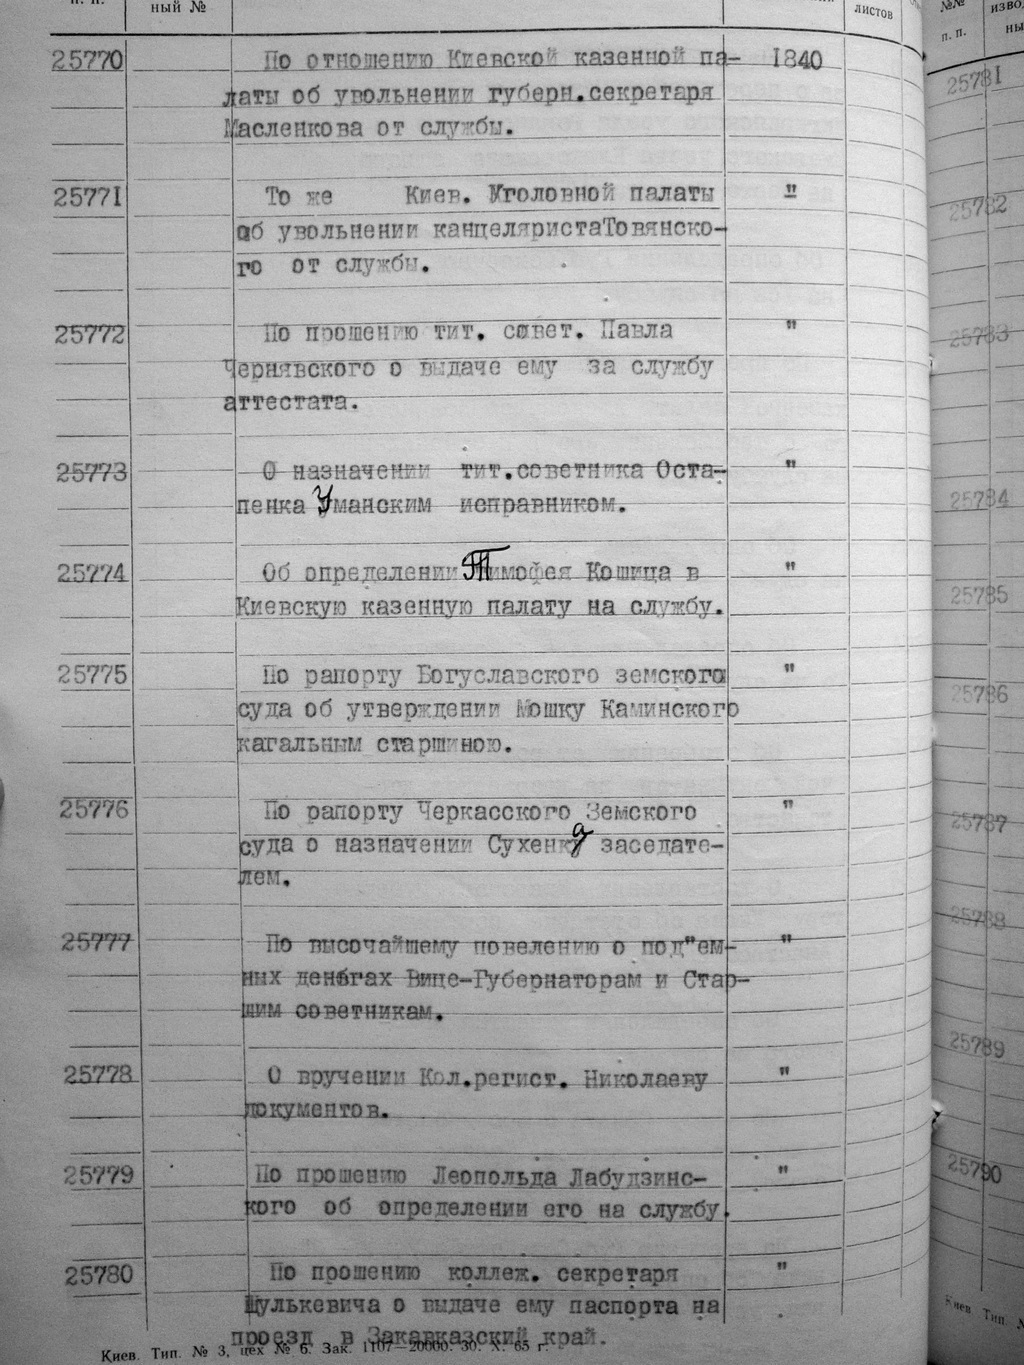 п. п.
ный №
листов
№№
п. п.
25770 По отношению Киевской казенной па- 1840
латы об увольнении губерн.секретаря
Масленкова от службы.
25771 То же Киев. Уголовной палаты "
об увольнении канцеляристаТовянско-
го от службы.
25772 По прошению тит. совет. Павла "
Чернявского о выдаче ему за службу
аттестата.
25773 О назначении тит.советника Оста- "
пенка Уманским исправником.
25774 Об определении Тимофея Кошица в "
Киевскую казенную палату на службу.
25775 По рапорту Богуславского земского "
суда об утверждении Мошку Каминского
кагальным старшиною.
25776 По рапорту Черкасского Земского "
суда о назначении Сухенка заседате-
лем.
25777 По высочайшему повелению о под"ем- "
ных деньгах Вице-Губернаторам и Стар-
шим советникам.
25778 О вручении Кол.регист. Николаеву "
документов.
25779 По прошению Леопольда Лабудзинс- "
кого об определении его на службу.
25780 По прошению коллеж. секретаря "
Шулькевича о выдаче ему паспорта на
проезд в Закавказский край.
Киев. Тип. № 3, цех № 6. Зак. 1107—20000. 30. X. 65 г.
25781
25782
25783
25784
25785
25786
25787
25788
25789
25790
Киев. Тип. №